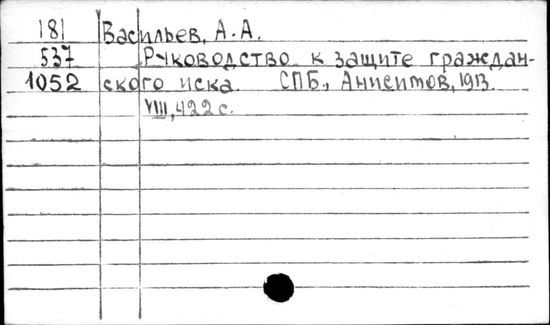 181 Васильев, А.А.
537 Руководство к защите граждан-
1052 ского иска. СПБ., Анисимов, 1913.
VIII, 422 с.